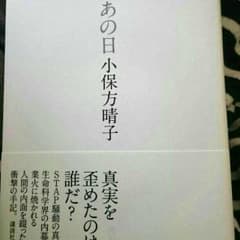 あの日 小保方晴子
真実を
歪めたのは
誰だ?
STAP騒動の真
生命科学界の内幕
業火に焼かれる
人間の内面を綴った
衝撃の手記。 講談社